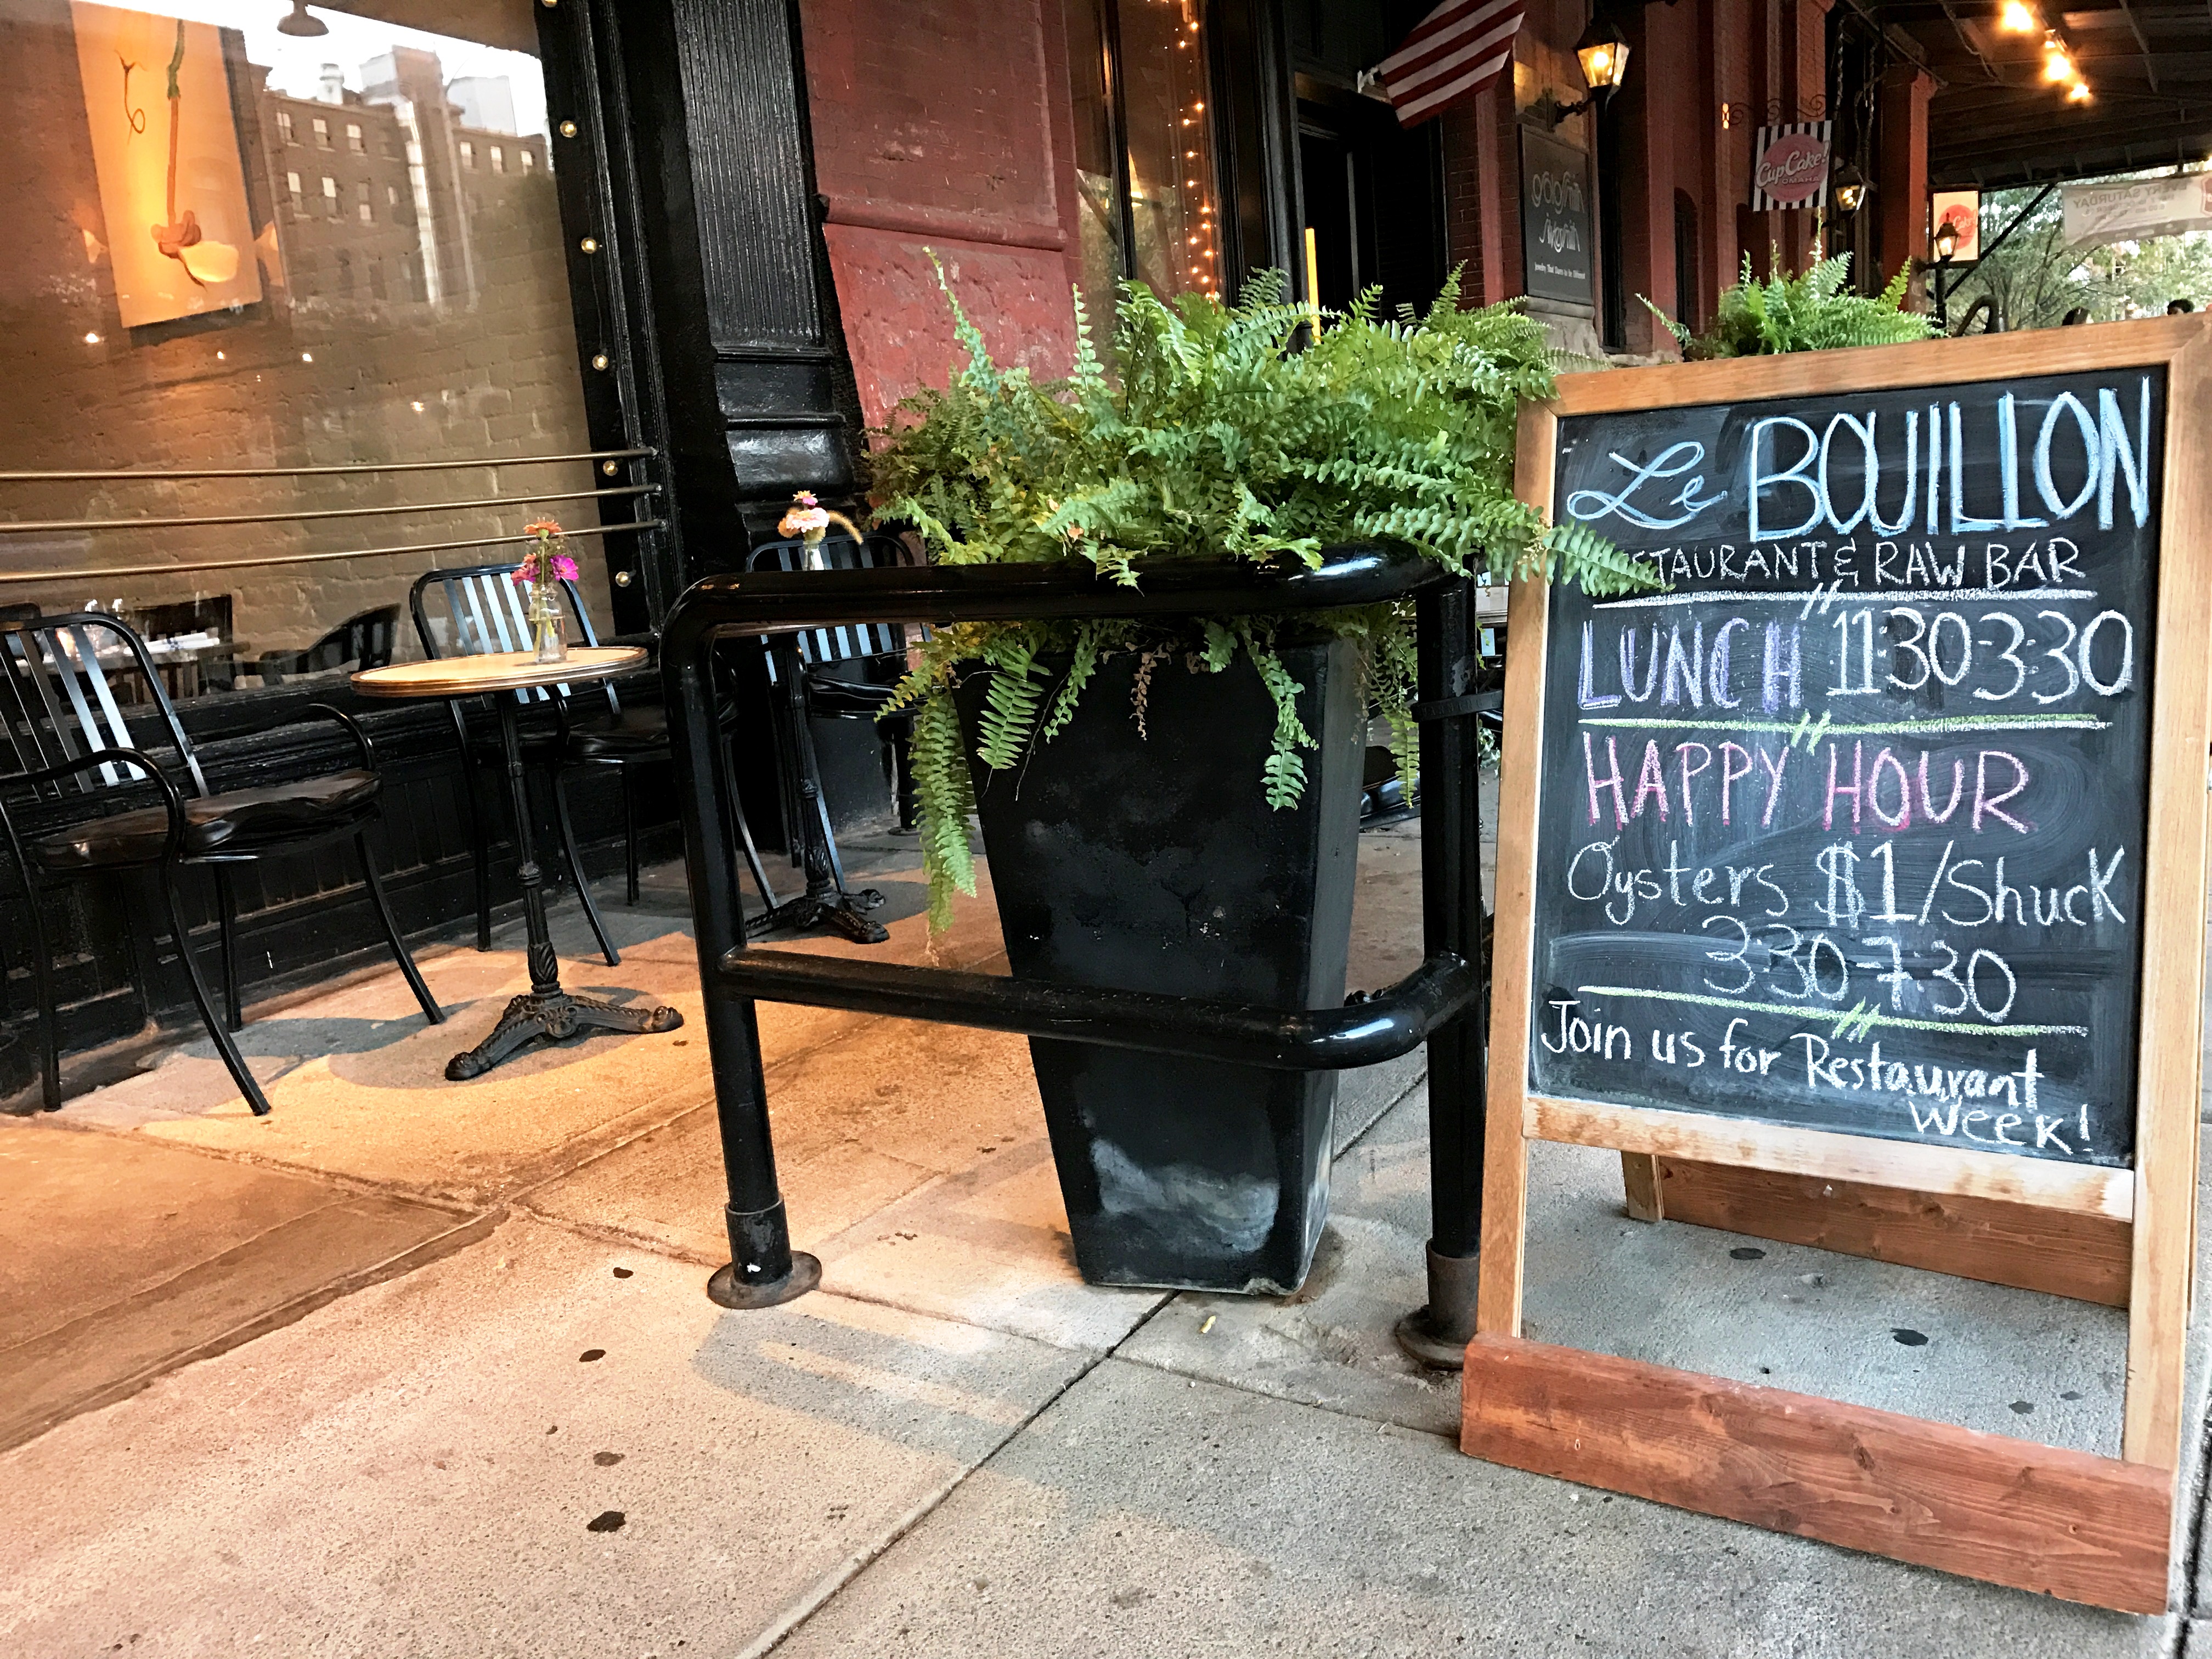 CupCake!
OMAHA
goldsmith
silversmith
Le BOUILLON
TAURANT & RAW BAR
LUNCH 11:30-3:30
HAPPY HOUR
Oysters $1/Shuck
3:30-7:30
Join us for Restaurant
Week!